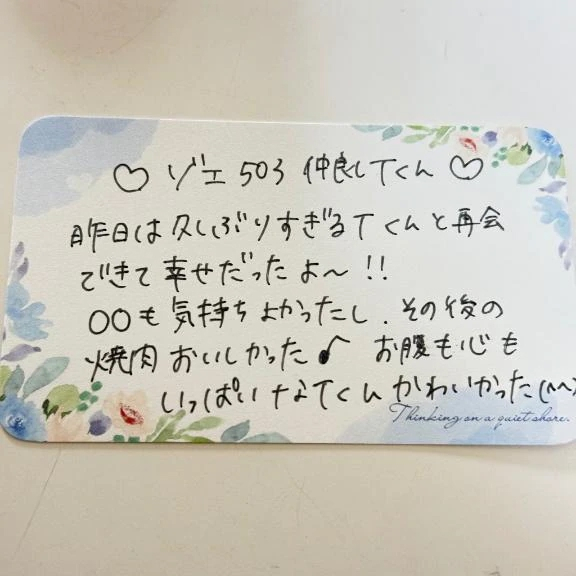 ♡ ゾエ503 仲良しTくん ♡
昨日は久しぶりすぎるTくんと再会
できて幸せだったよ〜!!
〇〇も気持ちよかったし、その後の
焼肉おいしかった♪ お腹も心も
いっぱいなTくんかわいかった(^^)
Thinking on a quiet shore.